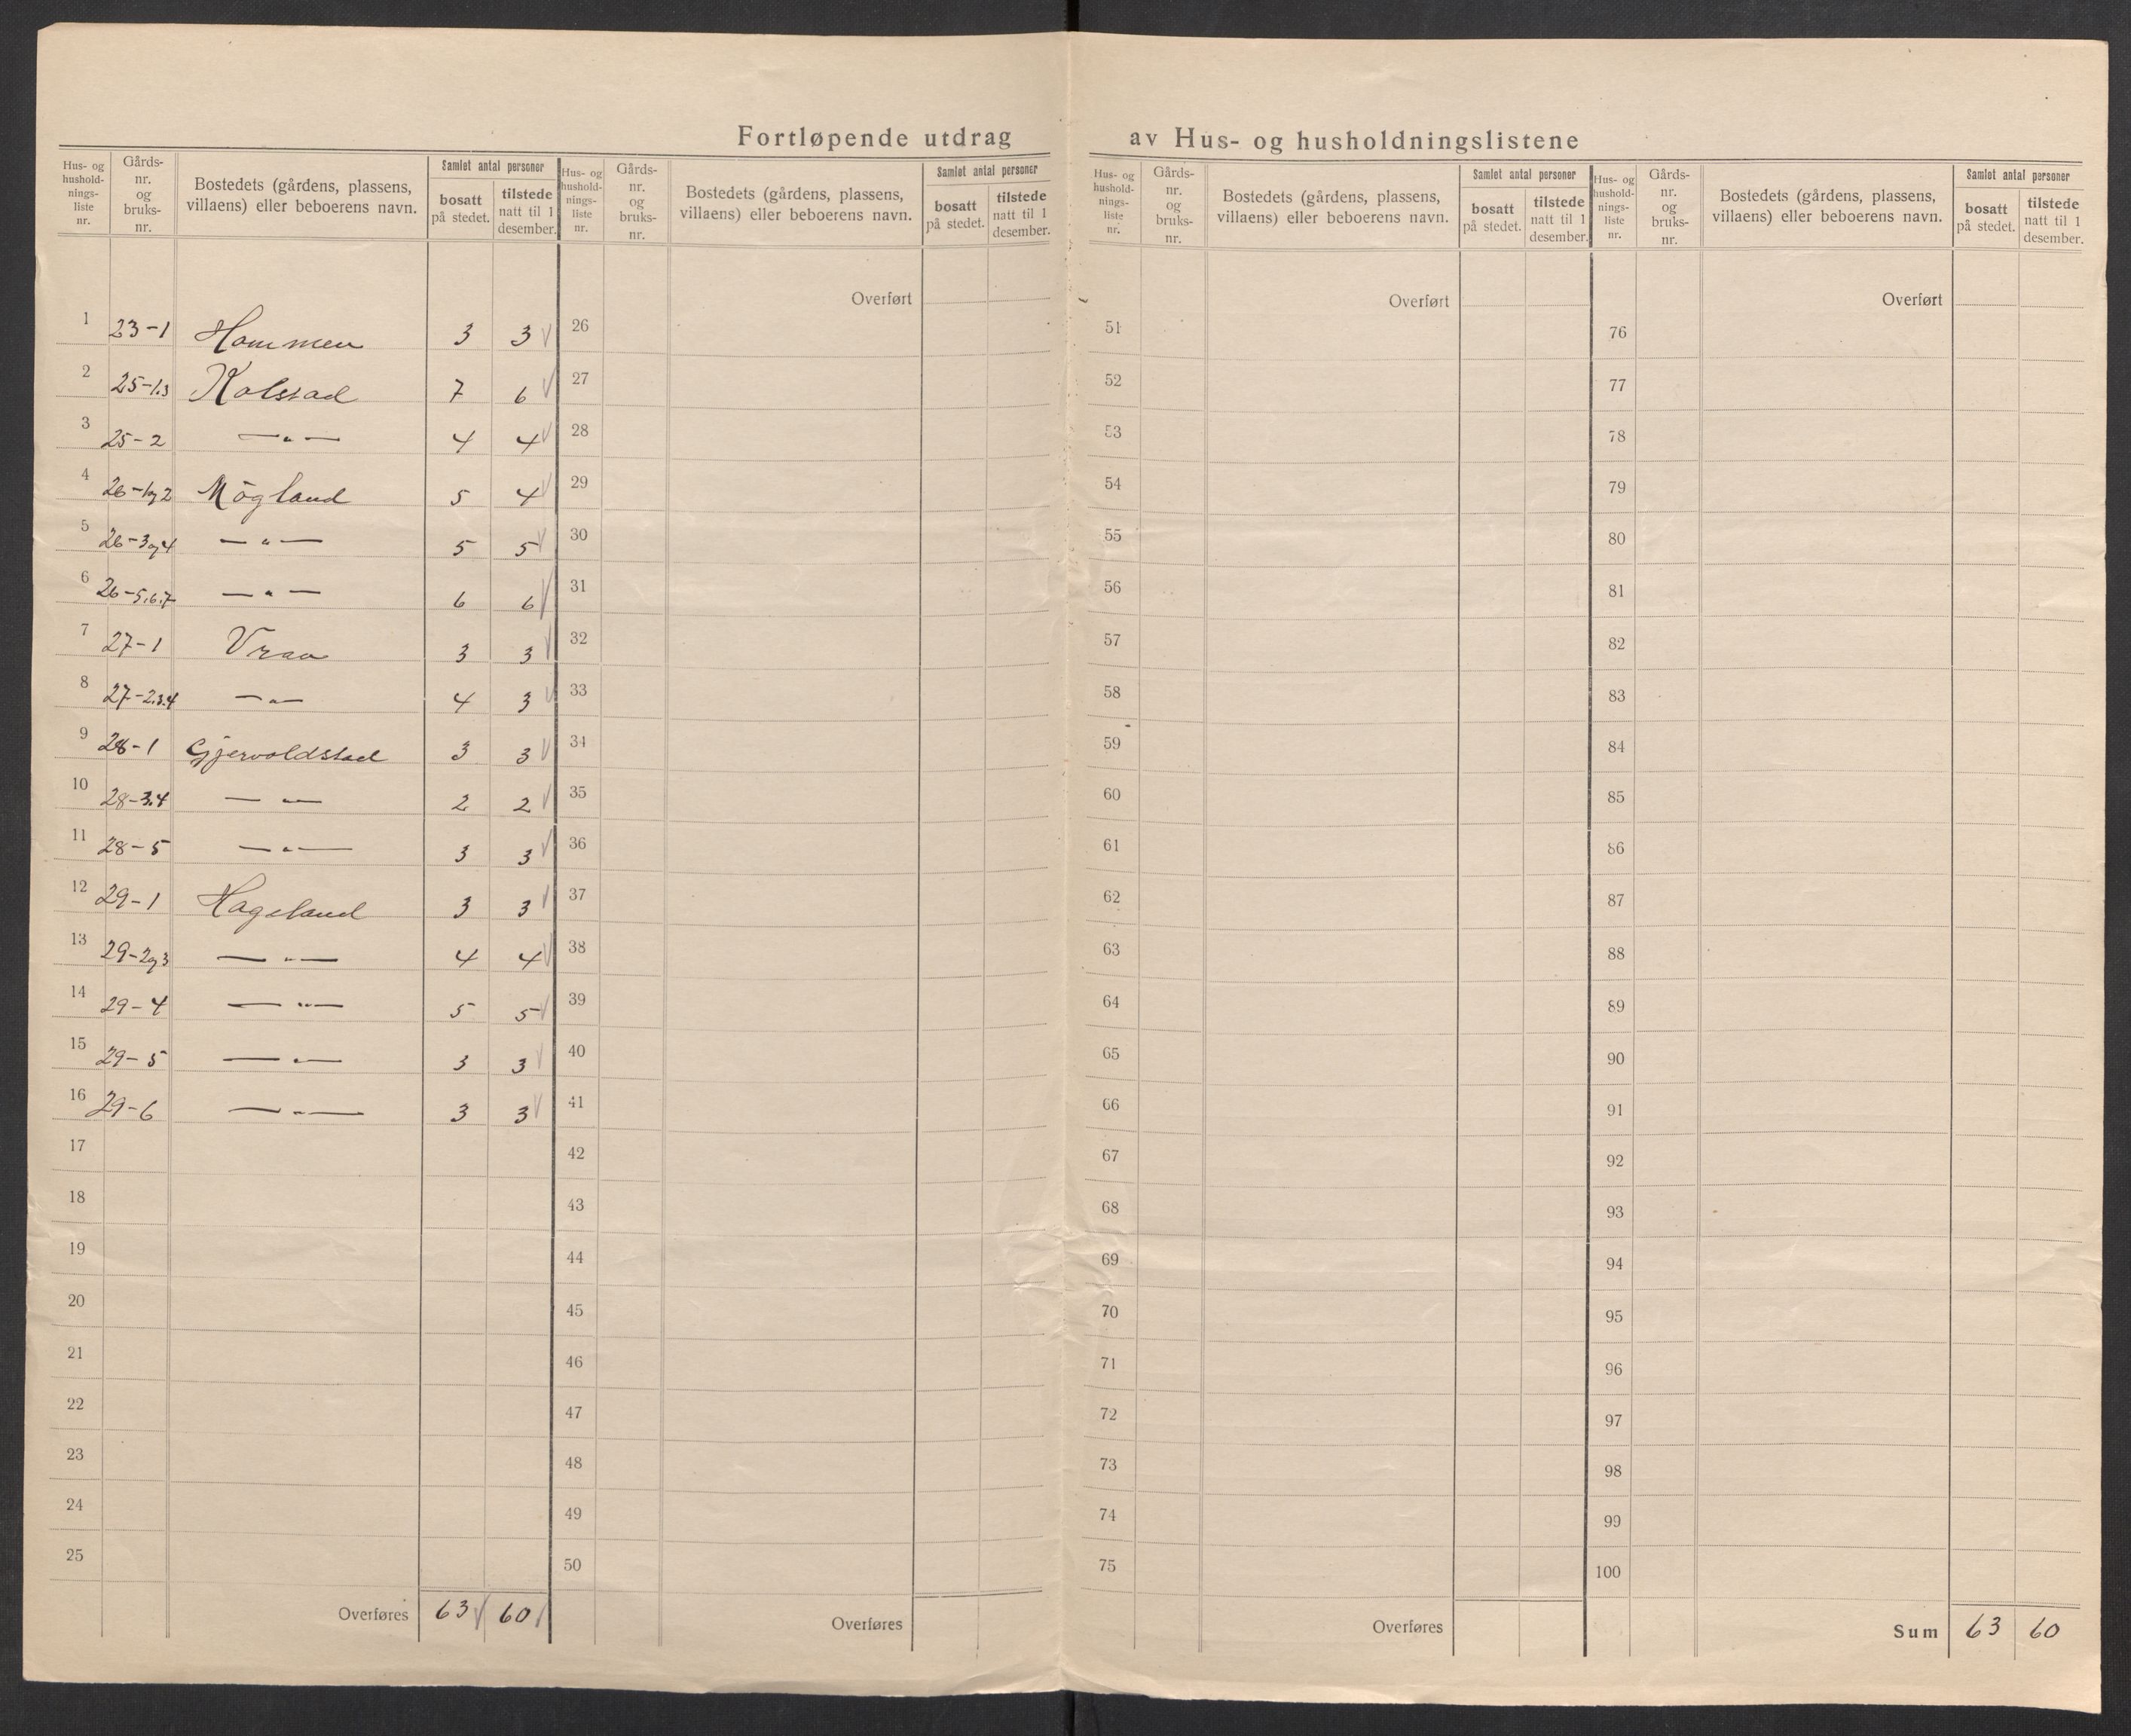 Fortløpende utdrag av Hus- og husholdningslistene
Hus- og husholdnings-liste nr. | Gårds-nr. og bruks-nr. | Bostedets (gårdens, plassens, villaens) eller beboerens navn. | Samlet antal personer bosatt på stedet. | tilstede natt til 1 desember.
Hus- og husholdnings-liste nr. | Gårds-nr. og bruks-nr. | Bostedets (gårdens, plassens, villaens) eller beboerens navn. | Samlet antal personer bosatt på stedet. | tilstede natt til 1 desember.
Hus- og husholdnings-liste nr. | Gårds-nr. og bruks-nr. | Bostedets (gårdens, plassens, villaens) eller beboerens navn. | Samlet antal personer bosatt på stedet. | tilstede natt til 1 desember.
Hus- og husholdnings-liste nr. | Gårds-nr. og bruks-nr. | Bostedets (gårdens, plassens, villaens) eller beboerens navn. | Samlet antal personer bosatt på stedet. | tilstede natt til 1 desember.
Overført Overført Overført
1 23-1 Hommen 3 3 √ 26 51 76
2 25-1.3 Kolstad 7 6 √ 27 52 77
3 25-2 —"— 4 4 √ 28 53 78
4 26-1og2 Mögland 5 4 √ 29 54 79
5 26-3og4 —"— 5 5 √ 30 55 80
6 26-5.6.7 —"— 6 6 √ 31 56 81
7 27-1 Vraa 3 3 √ 32 57 82
8 27-2.3.4 —"— 4 3 √ 33 58 83
9 28-1 Gjervoldstad 3 3 √ 34 59 84
10 28-3.4 —"— 2 2 √ 35 60 85
11 28-5 —"— 3 3 √ 36 61 86
12 29-1 Hageland 3 3 √ 37 62 87
13 29-2og3 —"— 4 4 √ 38 63 88
14 29-4 —"— 5 5 √ 39 64 89
15 29-5 —"— 3 3 √ 40 65 90
16 29-6 —"— 3 3 √ 41 66 91
17 42 67 92
18 43 68 93
19 44 69 94
20 45 70 95
21 46 71 96
22 47 72 97
23 48 73 98
24 49 74 99
25 50 75 100
Overføres 63 √ 60 √ Overføres Overføres Sum 63 60